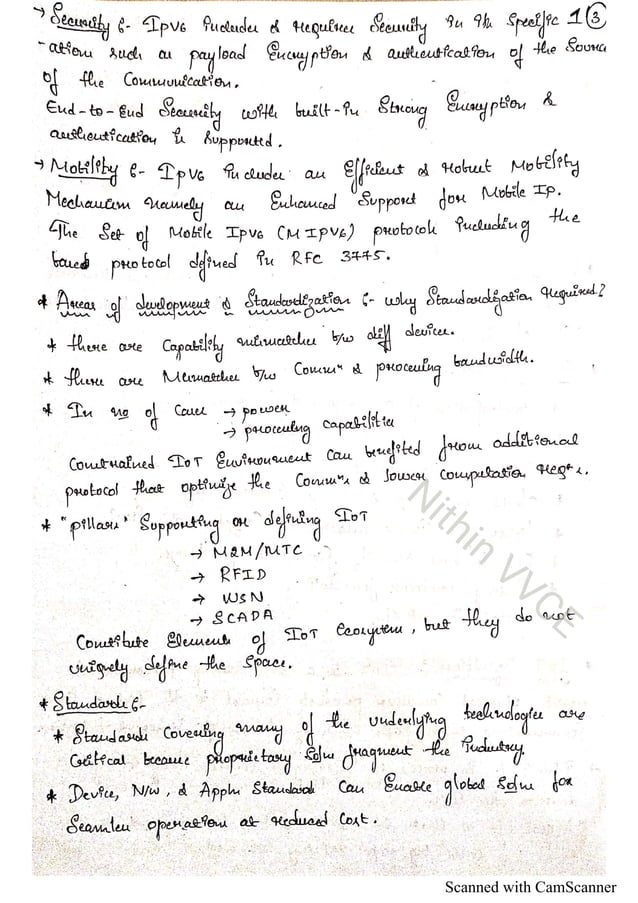 → Security :- IPv6 includes & requires Security in its specific 1 3
-ations such as payload Encryption & authentication of the Source
of the Communication.
End-to-End Security with built-in Strong Encryption &
authentication is Supported.
→ Mobility :- IPv6 includes an Efficient & robust Mobility
Mechanism namely an Enhanced Support for Mobile IP.
The Set of Mobile IPv6 (MIPv6) protocols including the
base protocol defined in RFC 3775.
* Areas of development & Standardization :- why Standardization required?
* there are Capability mismatches b/w diff devices.
* there are Mismatches b/w Commn & processing bandwidth.
* In no of Cases → power
→ processing capabilities
Constrained IoT Environment Can benefited from additional
protocol that optimize the Commns & lower computation reqts.
* "pillars" Supporting or defining IoT
→ M2M/MTC
→ RFID
→ WSN
→ SCADA
Constitute Elements of IoT Ecosystem, but they do not
uniquely define the Space.
* Standards :-
* Standards Covering many of the underlying technologies are
Critical because proprietary soln fragment the Industry.
* Device, N/w, & Appln Standards Can Enable global Soln for
Seamless operations at reduced Cost.
Nithin VVCE
Scanned with CamScanner